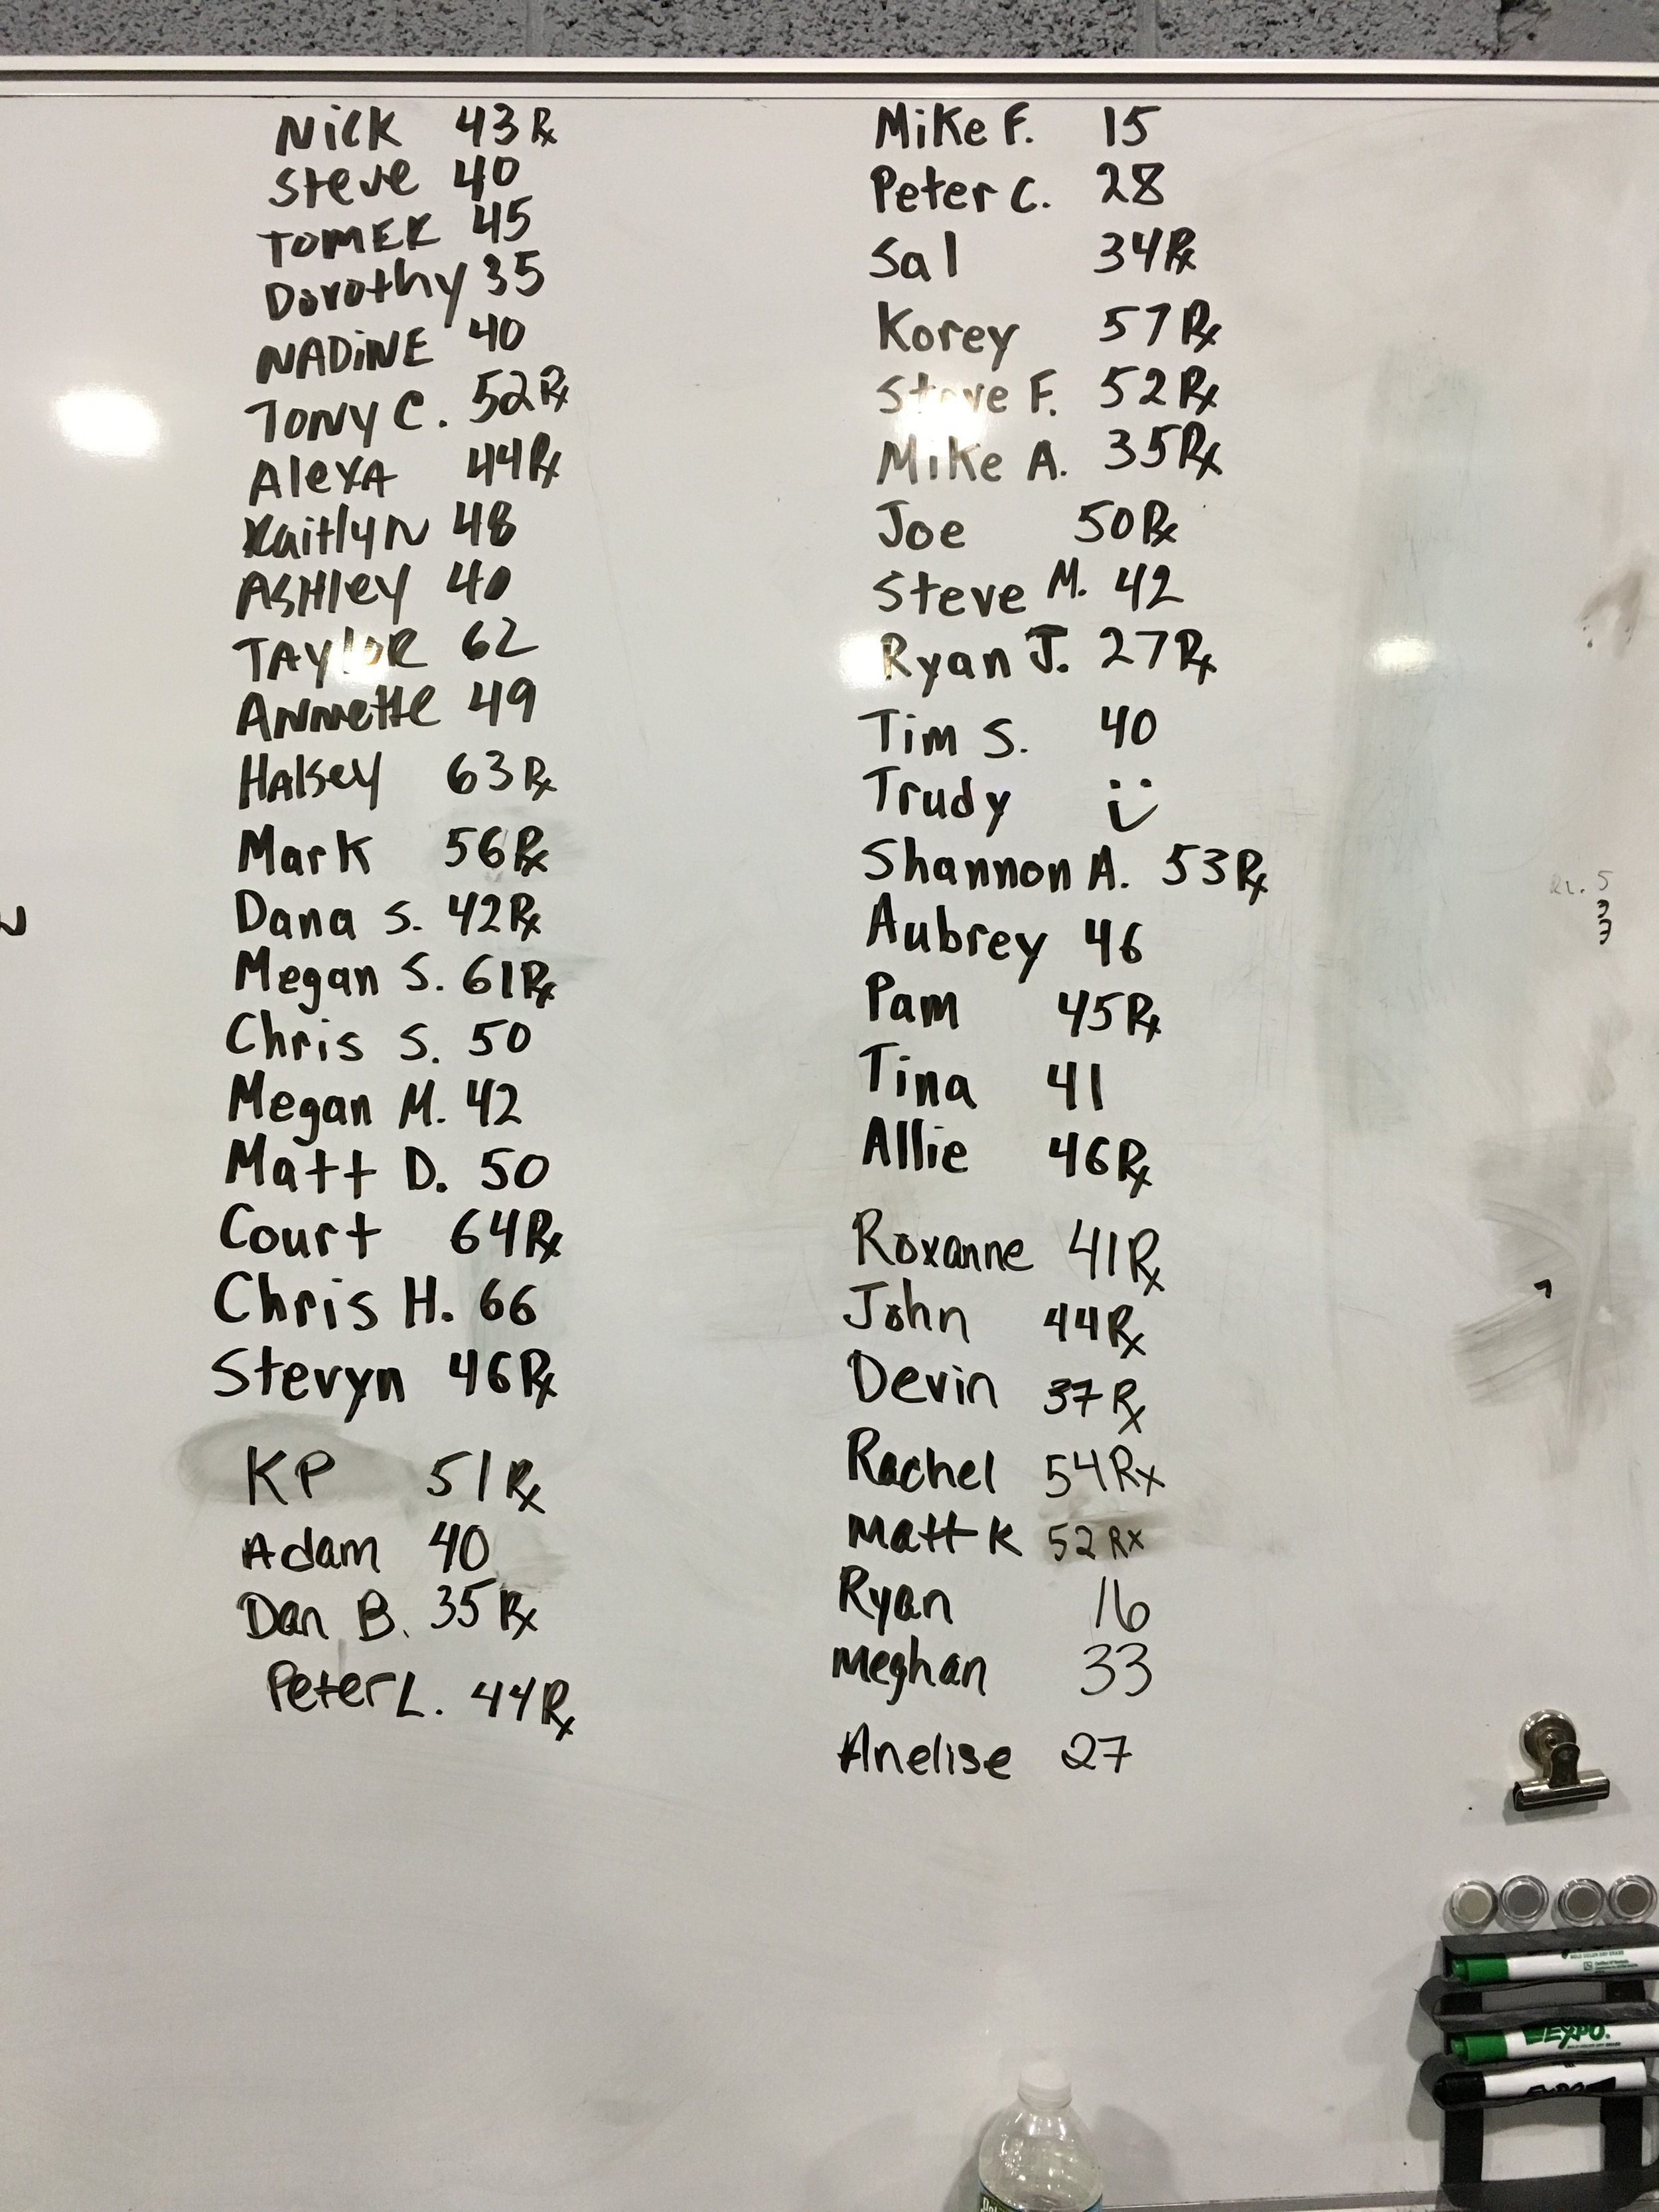 Nick 43 Rx
Steve 40
TOMEK 45
Dorothy 35
NADiNE 40
TONY C. 52 Rx
AlexA 44 Rx
KaitlyN 48
ASHley 40
TAYlOR 62
ANNette 49
HAlsey 63 Rx
Mark 56 Rx
Dana S. 42 Rx
Megan S. 61 Rx
Chris S. 50
Megan M. 42
Matt D. 50
Court 64 Rx
Chris H. 66
Stevyn 46 Rx
KP 51 Rx
Adam 40
Dan B. 35 Rx
Peter L. 44 Rx
Mike F. 15
Peter C. 28
Sal 34 Rx
Korey 57 Rx
Steve F. 52 Rx
Mike A. 35 Rx
Joe 50 Rx
Steve M. 42
Ryan J. 27 Rx
Tim S. 40
Trudy
Shannon A. 53 Rx
Aubrey 46
Pam 45 Rx
Tina 41
Allie 46 Rx
Roxanne 41 Rx
John 44 Rx
Devin 37 Rx
Rachel 54 Rx
Matt K 52 Rx
Ryan 16
Meghan 33
Anelise 27
5
3
3
EXPO.